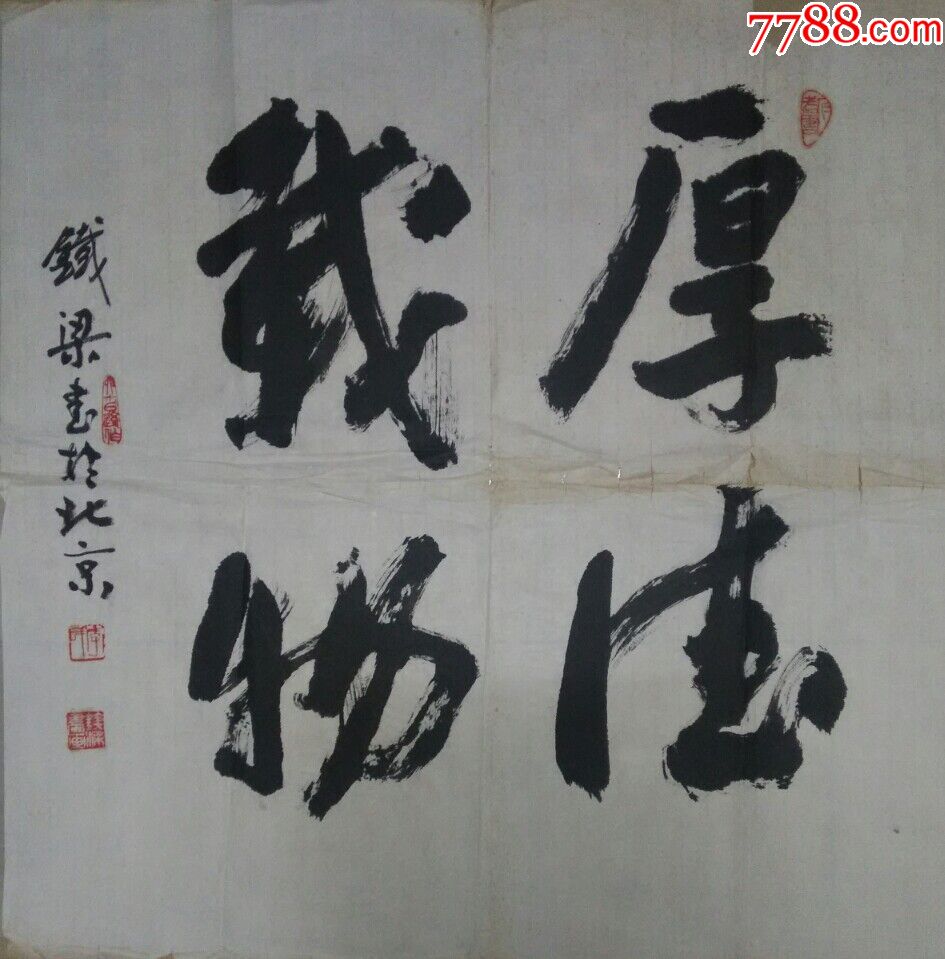 7788.com
厚德
載物
鐵梁書於北京